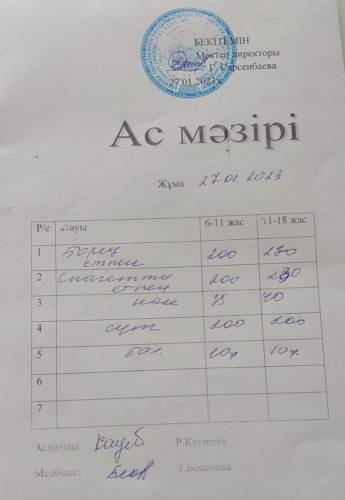 БЕКІТЕМІН
Мектеп директоры
Г. Сарсенбаева
27.01.2023 г.
Ас мәзірі
Жұма 27 01 2023
Р/с атауы 6-11 жас 11-18 жас
1 Борщ етпен 200 250
2 Спагетти етпен 200 230
3 нан 35 40
4 сүт 200 200
5 бал 10г 10г
6
7
Аспазшы: Р.Каушева
Медбике: Т.Бекенова